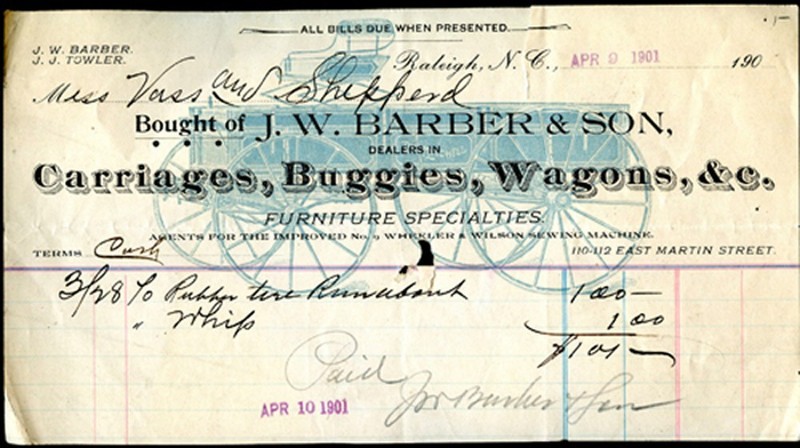 ALL BILLS DUE WHEN PRESENTED.
J. W. BARBER.
J. J. TOWLER.
Raleigh, N. C., APR 9 1901 190
Mess Vass and Shepperd
Bought of J. W. BARBER & SON,
DEALERS IN
Carriages, Buggies, Wagons, &c.
FURNITURE SPECIALTIES.
AGENTS FOR THE IMPROVED No. 9 WHEELER & WILSON SEWING MACHINE.
TERMS Cash 110-112 EAST MARTIN STREET.
3/28 To Rubber tire Runabout 100—
" Whip 1 00
$101—
Paid
APR 10 1901 JW Barber & Son